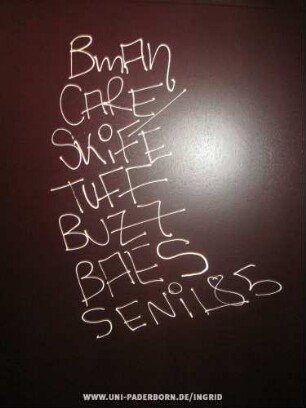 BmAN
CARE
SKiFE
TUFF
BUZZ
BAES
SENiL85
WWW.UNI-PADERBORN.DE/INGRID